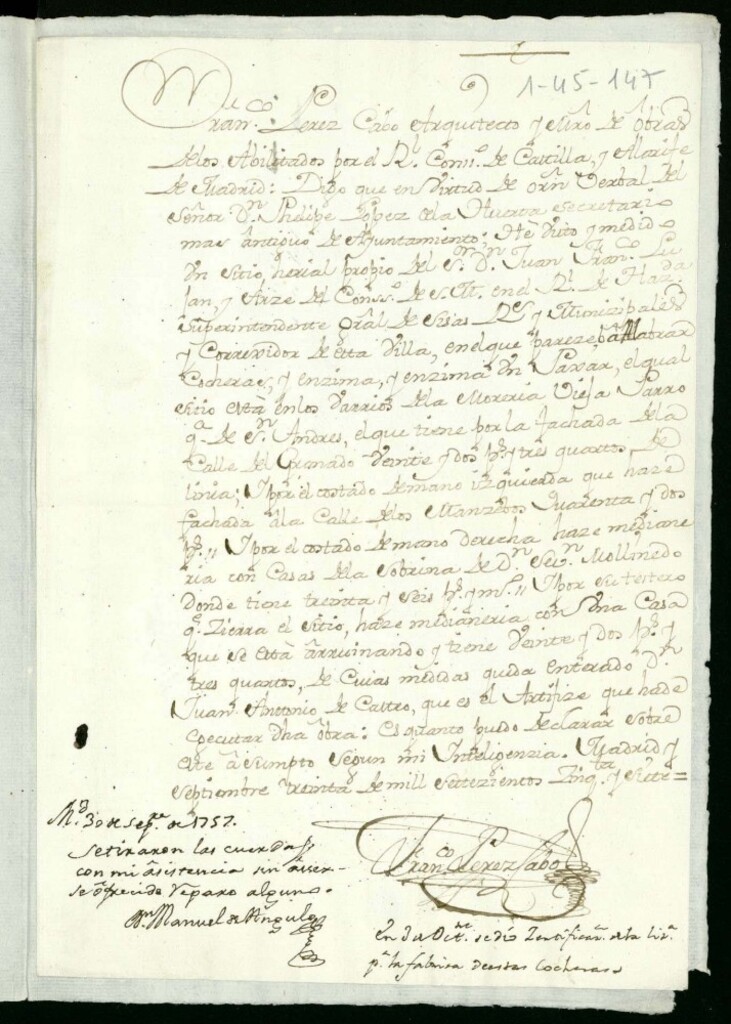 1-45-147
Fran.co Perez Cabo Arquitecto y Mro de obras
delos Abilitados por el Rl. Conss.o de Castilla, y Alarife
de Madrid: Digo que en virtud de orn Verbal del
Señor Dn. Phelipe Lopez dela Huerta secretario
mas antiguo de Ayuntamiento; Hè visto y medido
Un sitio herial propio del Sr. Dn. Juan Fran.co Lu
jan, y Arze del Conss.o de S. M. en el Rl. de Hazda
Superintendente gral de Sisas Rs y Munizipales
y Correxidor de esta Villa, en el que pareze, a labrar
Cocheras, y enzima, y enzima Un Paxar, el qual
sitio està en los varrios dela Moreria Vieja Parro
qa. de Sn. Andres, el que tiene por la fachada dela
Calle del Granado Veinte y dos ps. y tres quartos, de
linia; Y por el costado de mano izquierda que haze
fachada àla Calle delos Manzebos Quarenta y dos
ps. " Y por el costado de mano derecha haze mediane
ria con Casas dela Sobrina de Dn. Sevn. Mollinedo
donde tiene treinta y seis ps. y mo. " Y por su testero
q.e Zierra el sitio, haze medianeria con Una Casa
que se està arruinando y tiene Veinte y dos ps. y
tres quartos, de Cuias medidas queda enterado Dn.
Juan Antonio de Castro, que es el Artifize que hade
egecutar dha òbra: Es quanto puedo declarar sobre
este àsumpto segun mi Inteligenzia. Madrid y
Septiembre treinta de mill setezientos Zinq.ta y siete=
Md. 30 de sep.re de 1757.
Setiraron las cuerdas
con mi asistencia sin àver-
se òfrecido reparo alguno.
Dn. Manuel de Angulo
Fran.co Perez Cabo
en 3 de Oct.re se diò Zertificazn. dela liz.a
pa. la fabrica de estas Cocheras